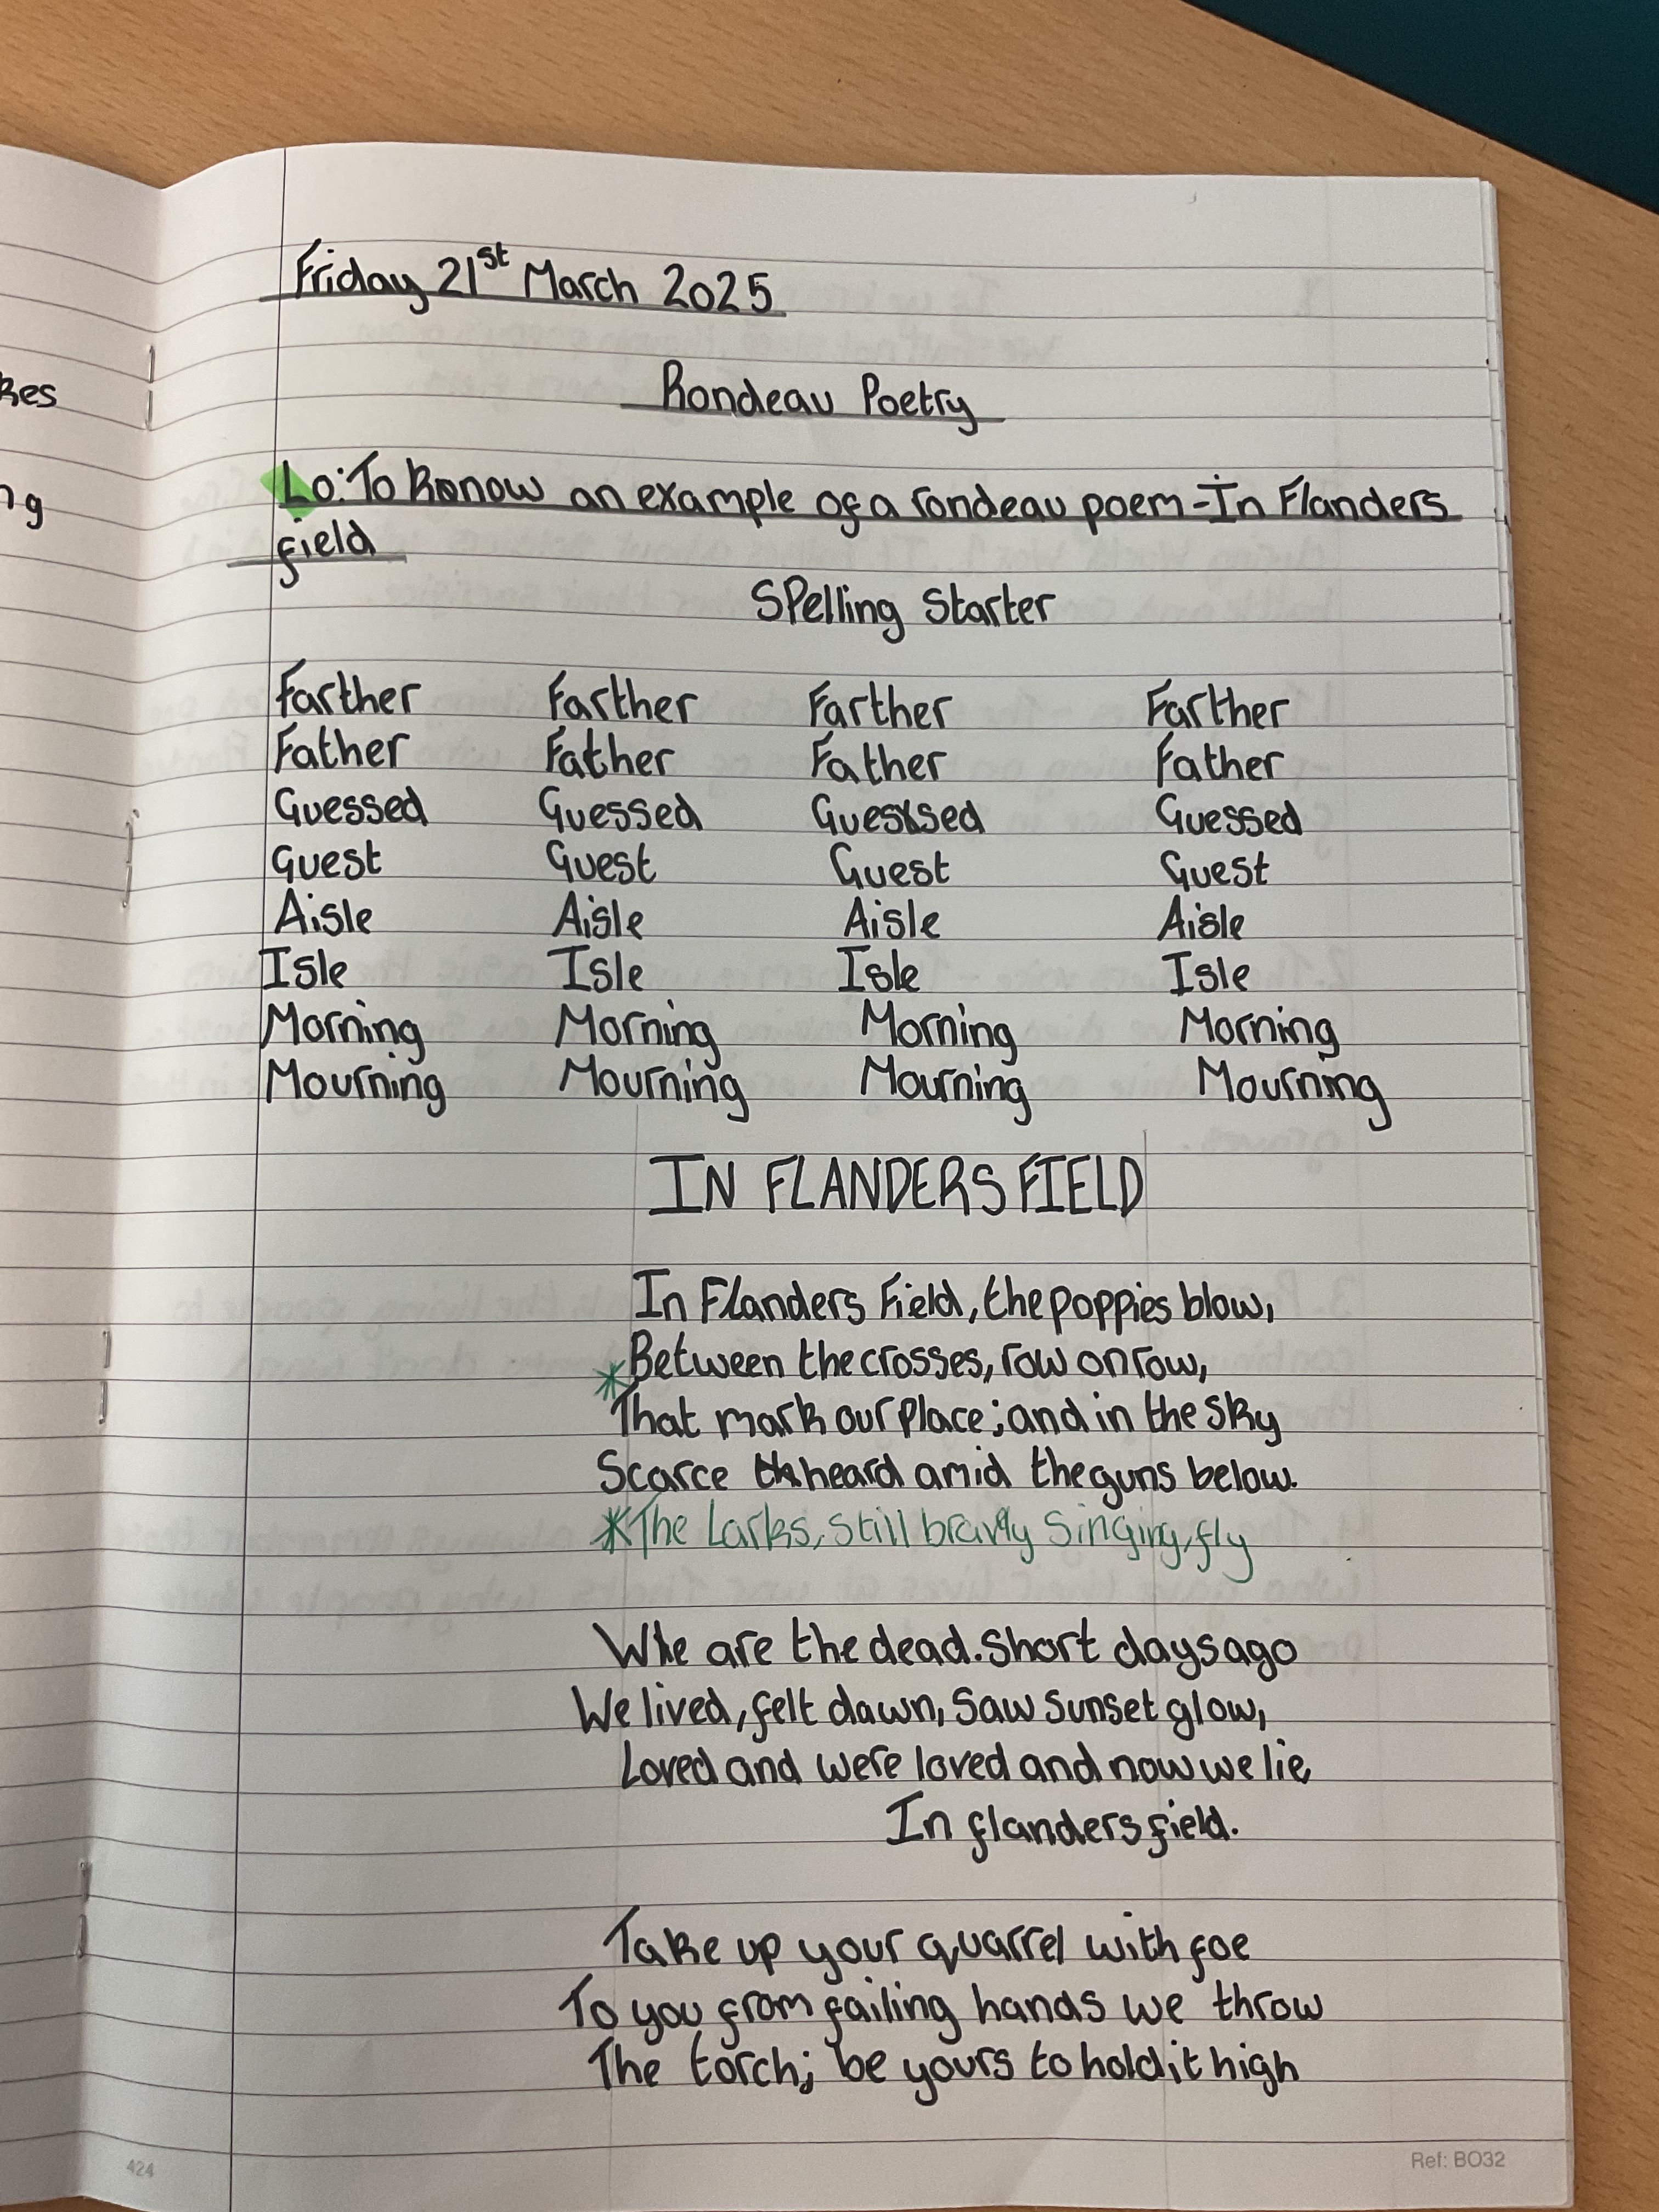 Friday 21st March 2025
Rondeau Poetry
Lo: To Konow an example of a rondeau poem - In Flanders
field
Spelling Starter
Farther Farther Farther Farther
Father Father Father Father
Guessed Guessed Guessed Guessed
Guest Guest Guest Guest
Aisle Aisle Aisle Aisle
Isle Isle Isle Isle
Morning Morning Morning Morning
Mourning Mourning Mourning Mourning
IN FLANDERS FIELD
In Flanders Field, the poppies blow,
Between the crosses, row on row,
*That mark our place; and in the sky
Scarce heard amid the guns below.
*The Larks, still bravly singing, fly
We are the dead. Short days ago
We lived, felt dawn, saw sunset glow,
Loved and were loved and now we lie
In flanders field.
Take up your quarrel with foe
To you from failing hands we throw
The torch; be yours to hold it high
424
Ref: BO32